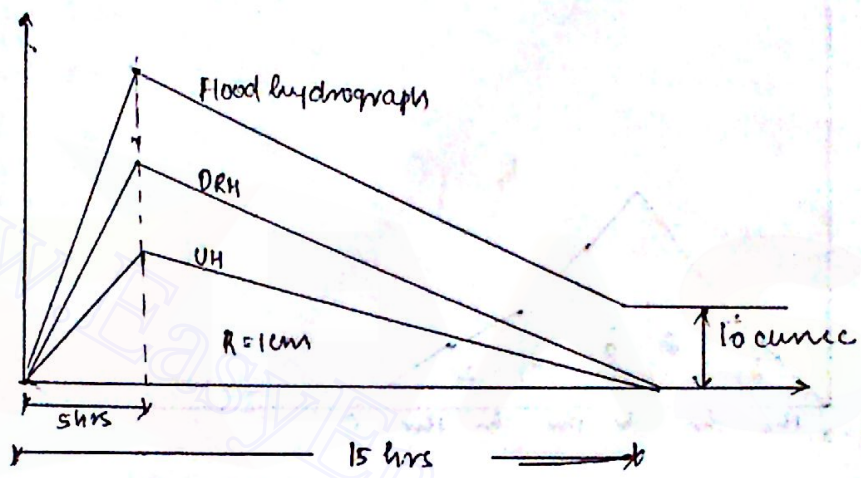 Flood hydrograph
DRH
UH
R = 1cm
10 cumec
5hrs
15 hrs